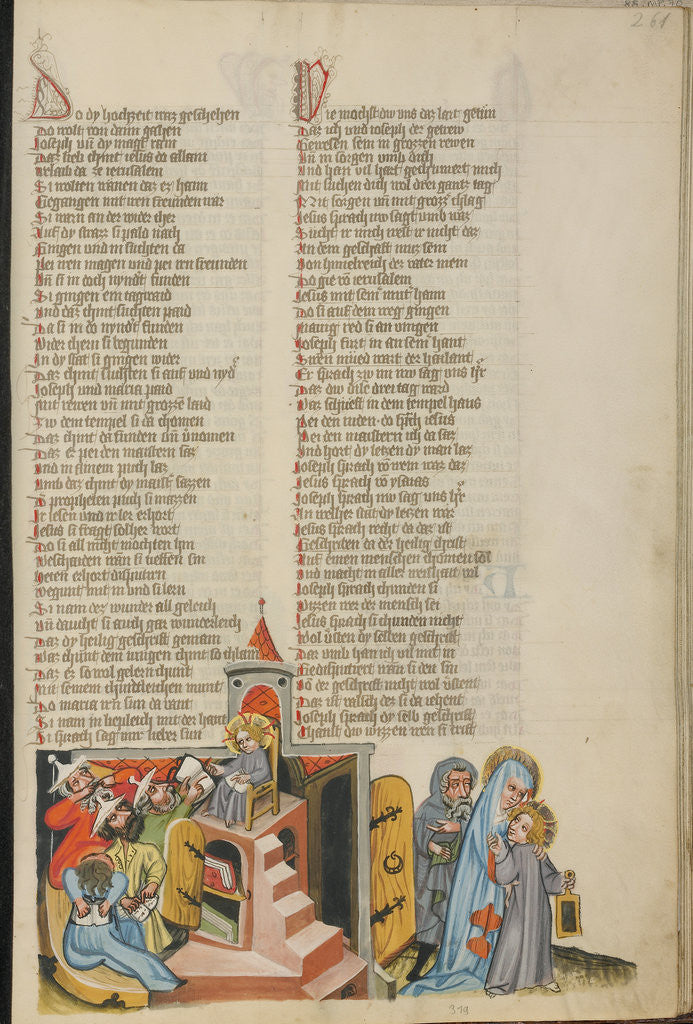 261
Do dy hochzeit waz geschehen
Do wolt von dann gahen
Joseph vnd dy magt rain
Daz lieb chint iesus da allain
Si wolten wänen daz ez hann
Gegangen mit iren freunden war
Si warn an der wider cher
Auf dy strazz si pald nach
Giengen und in suchten da
Pei iren magen und pei irn freunden
Vnd si in doch nyndt funden
Si gingen ein tagwaid
Und daz chint suchten paid
Da si in do nyndt funden
Wider chern si begunden
In dy stat si gingen wider
Daz chint suchten si auf und nyder
Joseph und maria paid
Mit rewen und mit grozze laid
Zw dem tempel si da chomen
Daz chint da funden und vernomen
Daz ez pei den maistern saz
Und in ainem puch laz
Umb daz chint dy maister sazzen
Ir lesen und ir ler erhort
Jesus si fragt solher wort
Do si all nicht mochten im
Si nam dez wunder all geleich
Daz dy heilig geschrift gemain
War chunt dem iungen chint so chlain
Daz er so wol gelern chunt
Mit seinem chindleichen munt
Do maria irn sun da vant
Si nam in liepleich mit der hant
Si sprach sag mir lieber sun
Wie mochst dw uns daz lait getun
Daz ich und ioseph der getrew
Gewesen sein in grozzen rewen
Und in sorgen umb dich
Und han vil hart gechumert mich
Mit suchen dich wol drei gantz tag
Mit sorgen und mit grozz chlag
Jesus sprach nw sagt umb waz
Sucht ir mich west ir nicht daz
An dem geschäft muz sein
Von himelreich der vater mein
Do gie von ierusalem
Jesus mit sein mut hann
Do si auf dem weg gingen
Manig red si an vingen
Joseph furt in an seiner hant
Swen mued wart der hailant
Er sprach zw im nw sag uns her
Daz dw dise drei tag ward
War schueff in dem tempel haus
Pei den iuden do sprach iesus
Pei den maistern ich da saz
Und hort dy letzen dy man laz
Joseph sprach von wem waz daz
Jesus sprach von ysaias
Joseph sprach nw sag uns her
In welher stat dy letzen wär
Jesus sprach recht da daz ist
Geschriben da der heilig christ
Auf einen menschen chomen sol
Und macht in aller weishait vol
Joseph sprach chunden si
Wizzen wer der mensch sei
Jesus sprach si chunden nicht
Wol versten dy selben geschrift
Dar umb han ich vil mit in
Gedisputiert wann si den sin
Von der geschrift nicht wol verstent
Daz ist valsch des si da iehent
Joseph sprach dy selb geschrift
319